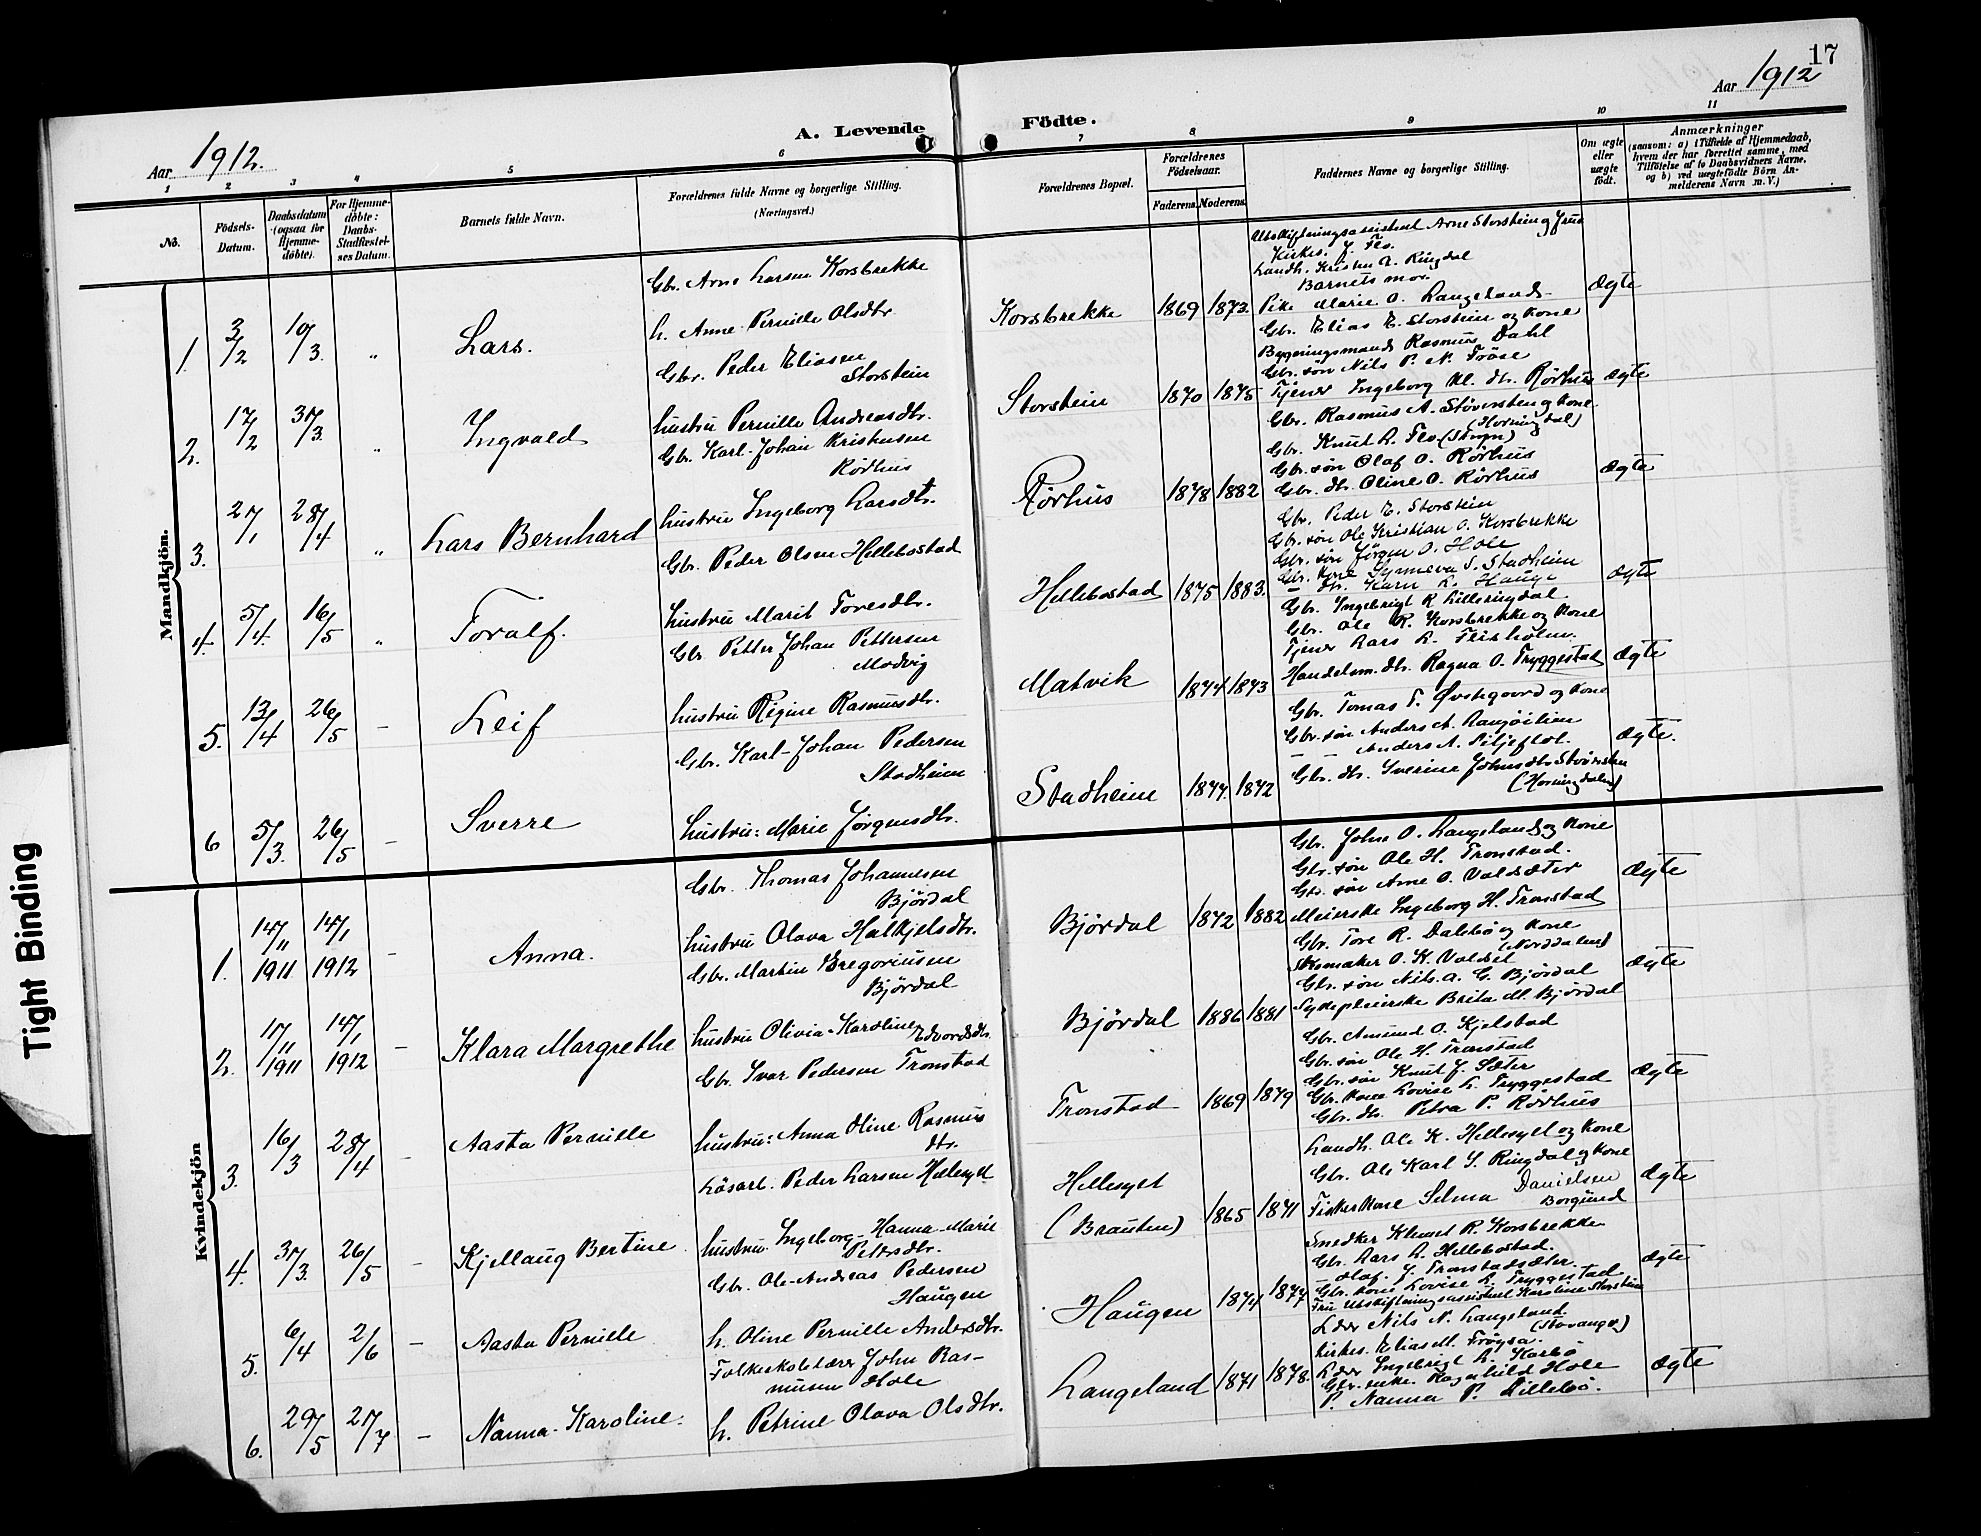 17
Aar 1912.
A. Levende Födte.
Aar 1912
1 2 3 4 5 6 7 8 9 10 11
No.
Födsels-Datum.
Daabsdatum (ogsaa for Hjemme-döbte).
For Hjemme-döbte: Daabs-Stadfæstel-ses Datum.
Barnets fulde Navn.
Forældrenes fulde Navne og borgerlige Stilling.
(Næringsvei.)
Forældrenes Bopæl.
Forældrenes Födselsaar.
Faderens. Moderens.
Faddernes Navne og borgerlige Stilling.
Om ægte eller uægte födt.
Anmærkninger
(saasom: a) i Tilfælde af Hjemmedaab, hvem der har forrettet samme, med Tilföielse af to Daabsvidners Navne, og b) ved uægtefödte Börn An-melderens Navn m. V.)
Mandkjön.
1. 3/2 10/3. " Lars.
Gbr. Arne Larsen Korsbrekke
h. Anne Pernille Olsdtr.
Korsbrekke 1869 1873.
Utskiftningsassistent Arne Storstein og frue
Kirkes. J. Flo.
Landh. Kristen A. Ringdal
Barnets mor.
Pike Marie O. Langeland
Ægte
2. 17/2 31/3. " Ingvald
Gbr. Peder Eliasen
Storstein
hustru Pernille Andreasdtr.
Storstein 1870 1875
Gbr. Elias E. Storstein og kone
Bygningsmand Rasmus Dahl
Gbr. søn Nils P. N. Frøse
Tjener Ingeborg Kl. dtr. Rørhus
Ægte
3. 27/1 28/4 " Lars Bernhard
Gbr. Karl-Johan Kristensen
Rødhus
hustru Ingeborg Larsdtr.
Rørhus 1878 1882
Gbr. Rasmus A. Støversten og kone
(Horningdal)
Gbr. Knut L. Flo (Stryn)
Gbr. søn Olaf O. Rørhus
Gbr. dtr. Oline O. Rørhus
Ægte
4. 5/4. 16/5 " Toralf.
Gbr. Peder Olsen Hellebostad
hustru Marit Toresdtr.
Hellebostad 1875 1883.
Gbr. Peder E. Storstein
Gbr. søn Ole Kristian O. Korsbrekke
Gbr. søn Jörgen O. Hole
Gbr. kone Synneva S. Stadheim
– dtr. Karn L. Hauge
Ægte
5. 13/4 26/5 – Leif
Gbr. Petter Johan Pettersen
Modvig
hustru Regine Rasmusdtr.
Matvik 1874 1873
Gbr. Ingebrigt R. Lilleringdal
Gbr. Ole R. Korsbrekke og kone
Tjener Lars L. Fleisholm.
Handelsm. dtr. Ragna O. Tryggestad
Ægte
6 5/3. 26/5 – Sverre
Gbr. Karl-Johan Pedersen
Stadheim
hustru: Marie Jørgensdtr.
Stadheim 1877. 1872
Gbr. Tomas T. Øvstegaard og kone
Gbr. søn Anders A.
Anders A.
Gbr. dtr. Sverine Johnsdtr.
(Horningdalen)
Ægte.
Kvindekjön
1. 14/11 1911 14/1 1912 – Anna.
Gbr. Thomas Johannesen
Bjørdal
hustru Olava Halkjelsdtr.
Bjørdal 1872 1882
Gbr. John O. Langeland og kone
Gbr. søn Ole H. Tronstad.
Gbr. søn Arne O. Valdsæter
Meierske Ingeborg H. Tronstad
Ægte
2. 17/11 1911 14/1 1912 – Klara Margrethe
Gbr. Martin Gregoriusen
Bjørdal
hustru Olivia-Karoline Edvardsdtr.
Bjørdal 1886 1881
Gbr. Tore R. Dalsbø og kone
(Norddalen)
Skomaker O. K. Valdet
Gbr. søn Nils A. G. Bjørdal
Sykepleierske Brita M. Bjørdal
Ægte
3. 16/3 28/4 – Aasta Pernille
Gbr. Ivar Pedersen Tronstad
hustru: Anna Oline Rasmus
dtr.
Tronstad 1869 1879
Gbr. Amund O. Kjelstad
Gbr. søn Ole H. Tronstad
Gbr. søn Knut J. Sæter
Gbr. kone Lovise L. Tryggestad
Gbr. dtr. Petra P. Rødhus
Ægte
4. 31/3. 26/5 – Kjellaug Bertine
Løsarb. Peder Larsen Hellesylt
hustru. Ingeborg-Hanna-Marie
Petersdtr.
Hellesylt
(Brauten) 1865 1871
Landh. Ole K. Hellesylt og kone
Gbr. Ole Karl S. Ringdal og kone
Fiskerkone Selma Danielsen
Borgund
Ægte
5. 6/4 2/6 – Aasta Pernille
Gbr. Ole-Andreas Pedersen
Haugen
h. Oline Pernille Andersdtr.
Haugen 1874 1877
Snedker Klemet R. Korsbrekke
Gbr. Lars L. Hellebostad.
– Olaf J. Tronstadsæter.
Gbr. kone Lovise L. Tryggestad
Fru Utskiftningsassistent Karoline Storstein
Ægte
6. 29/5 21/7 – Nanna-Karoline.
Folkeskolelærer John Ras-
musen Hole
h. Petrine Olava Olsdtr.
Langeland 1871 1878.
Lærer Nils N. Langeland
(Stavanger)
Kirkes. Elias M. Frøysa.
Lærer Ingebrigt L. Karbø
Gbr. enke. Ragnhild Hole
P. Nanna P. Lillebø.
Ægte
Tight Binding